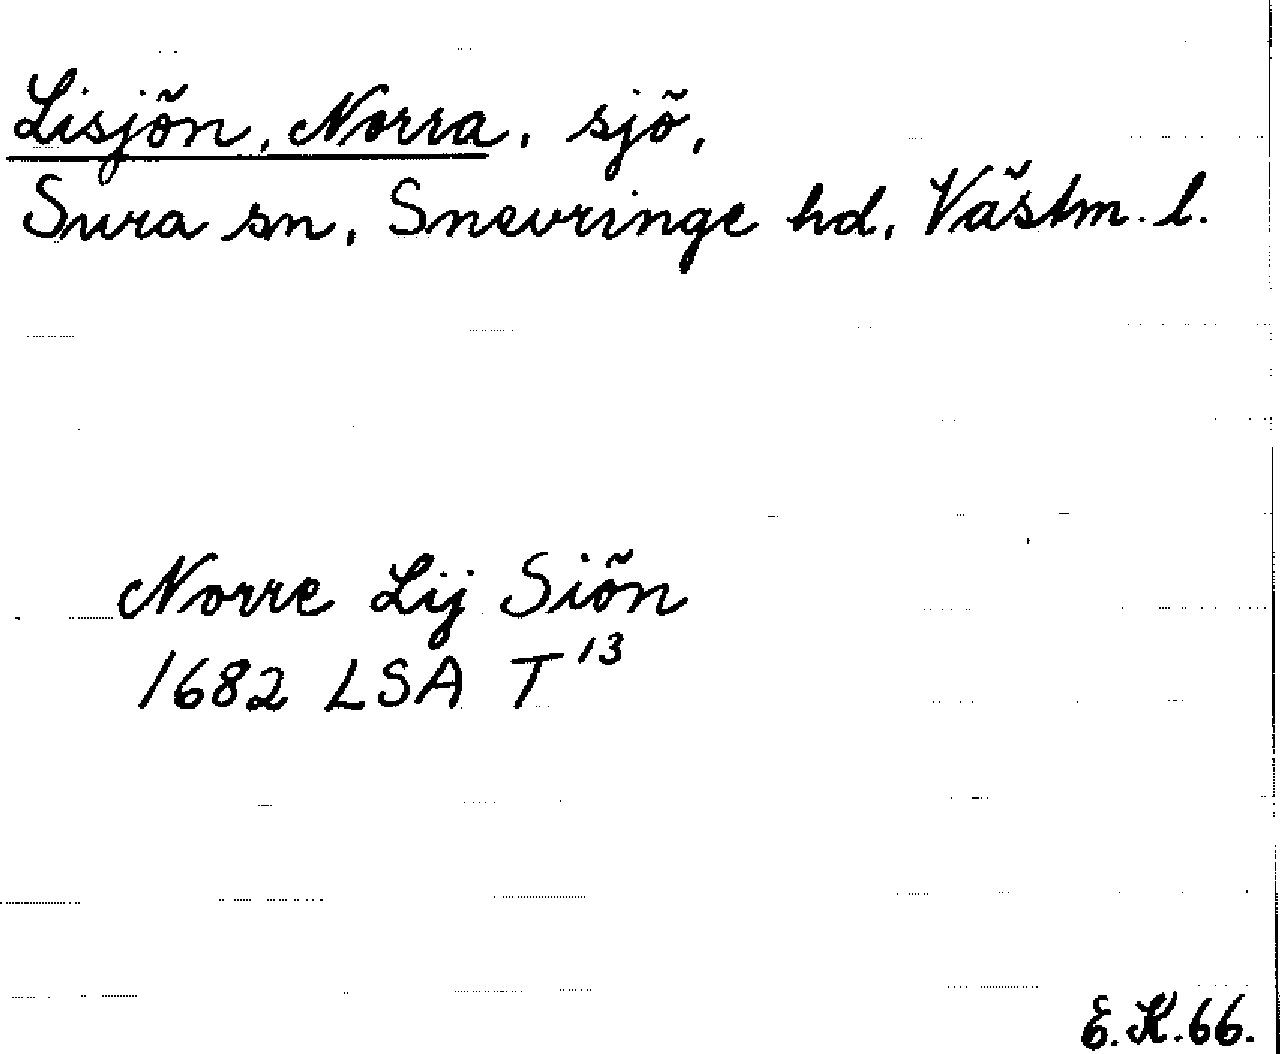 Lisjön, Norra, sjö,
Sura sn, Snevringe hd, Västm. l.
Norre Lij Siön
1682 LSA T 13
E. K. 66.